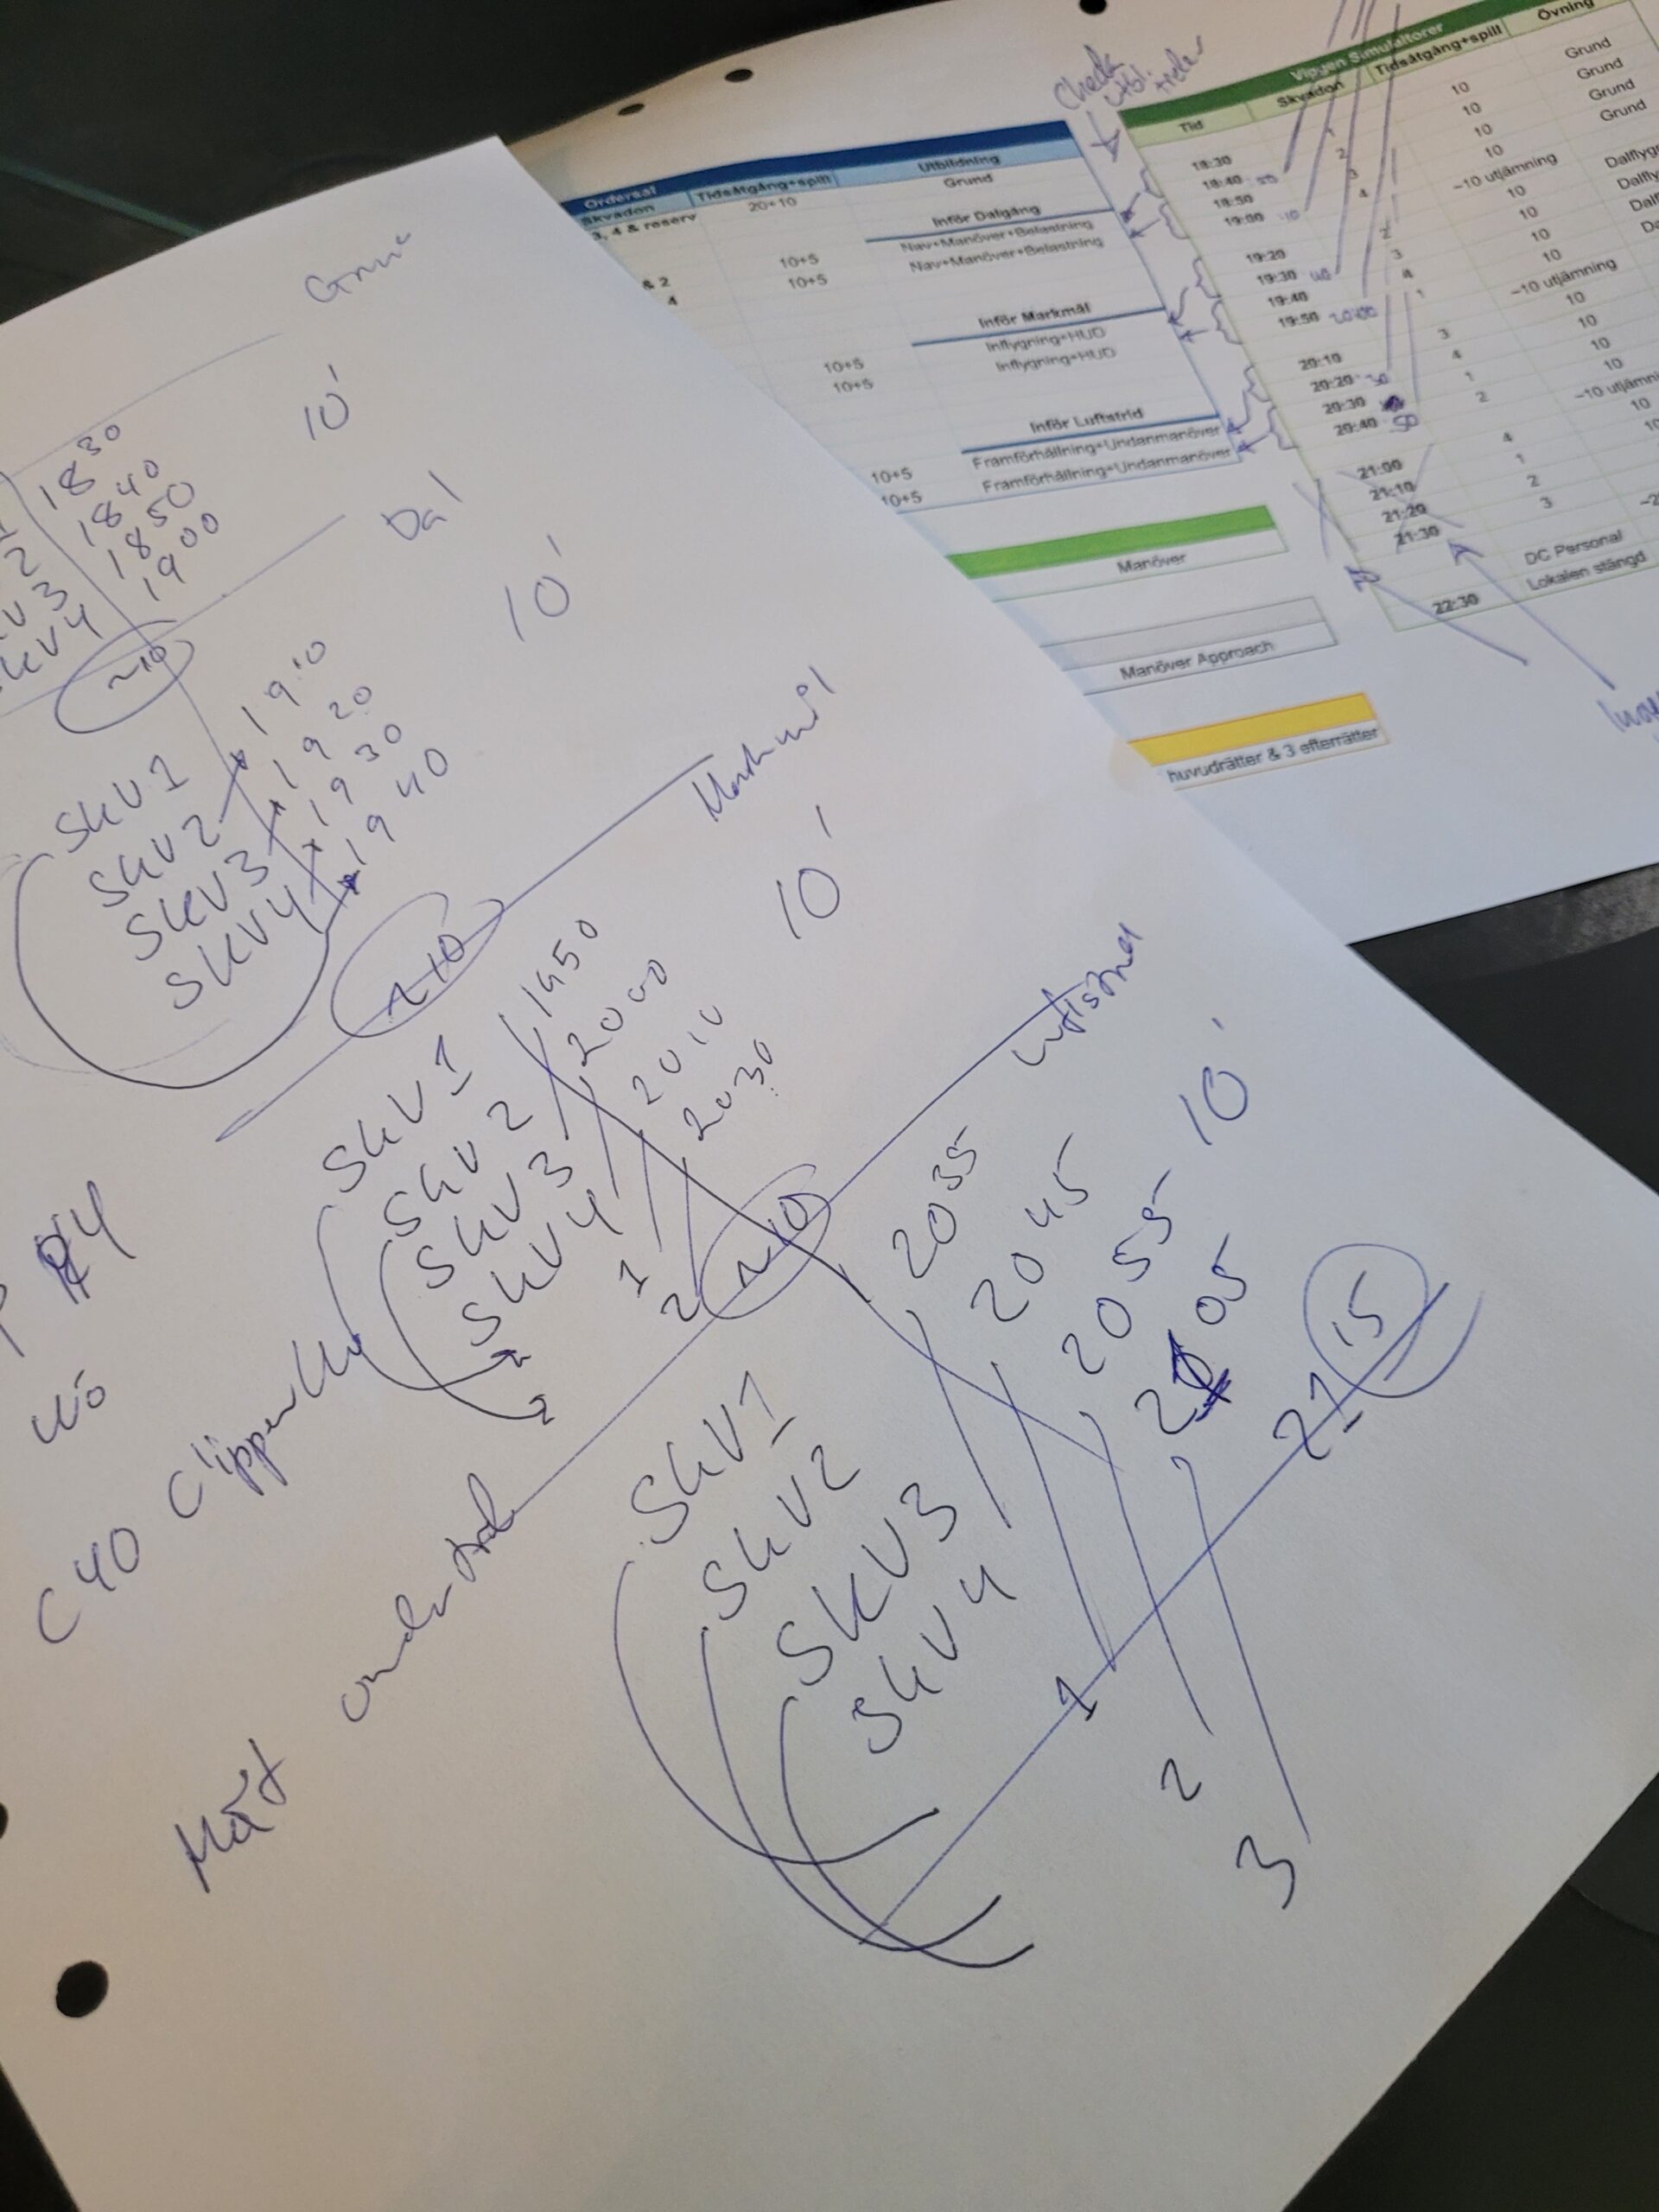 Grund
10'
1 18 30
2 18 40
SKV 3 18 50
SKV4 19 00
~10
Dal
10'
SKV1 19 10
SKV2 19 20
SKV3 19 30
SKV4 19 40
~10
Markmål
10'
SKV1 1950
SKV2 2000
SKV3 2010
SKV4 2030
1
2
~10
10'
SKV1 2035
SKV2 2045
SKV3 2055
SKV4 2105
21 15
1
2
3
C40
Mät
Check
utbl.
Ordersal
Skvadon Tidsåtgång+spill Utbildning
3, 4 & reserv 20+10 Grund
Inför Dalgång
& 2 10+5 Nav+Manöver+Belastning
4 10+5 Nav+Manöver+Belastning
Inför Markmål
10+5 Inflygning+HUD
10+5 Inflygning+HUD
Inför Luftstrid
10+5 Framförhållning+Undanmanöver
10+5 Framförhållning+Undanmanöver
Manöver
Manöver Approach
huvudrätter & 3 efterrätter
Viggen Simulatorer
Tid Skvadon Tidsåtgång+spill Övning
18:30 1 10 Grund
18:40 50 2 10 Grund
18:50 3 10 Grund
19:00 4 10 Grund
~10 utjämning
19:20 2 10 Dalflyg
19:30 40 3 10 Dalfly
19:40 4 10 Dalf
19:50 1 10 Da
~10 utjämning
20:10 3 10
20:20 30 4 10
20:30 1 10
20:40 50 2 10
~10 utjämni
21:00 4 10
21:10 1 10
21:20 2
21:30 3
~2
DC Personal
22:30 Lokalen stängd